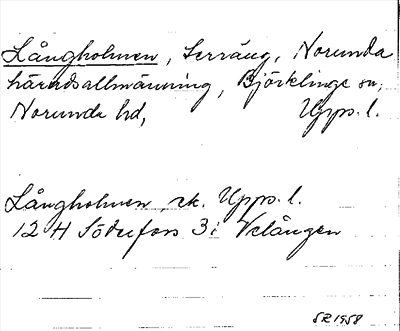 Långholmen, terräng, Norunda
häradsallmänning, Björklinge sn,
Norunda hd, Upps. l.
Långholmen, sk. Upps. l.
12 H Söderfors 3 i Velången
SR 1958